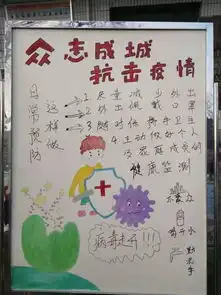 众志成城
抗击疫情
日常预防
这样做
1 尽量减少外出
2 外出佩戴口罩
3 随时保持手卫生
4 主动做好个人
及家庭成员的
健康监测
不聚众
勤洗手
病毒走开!!!